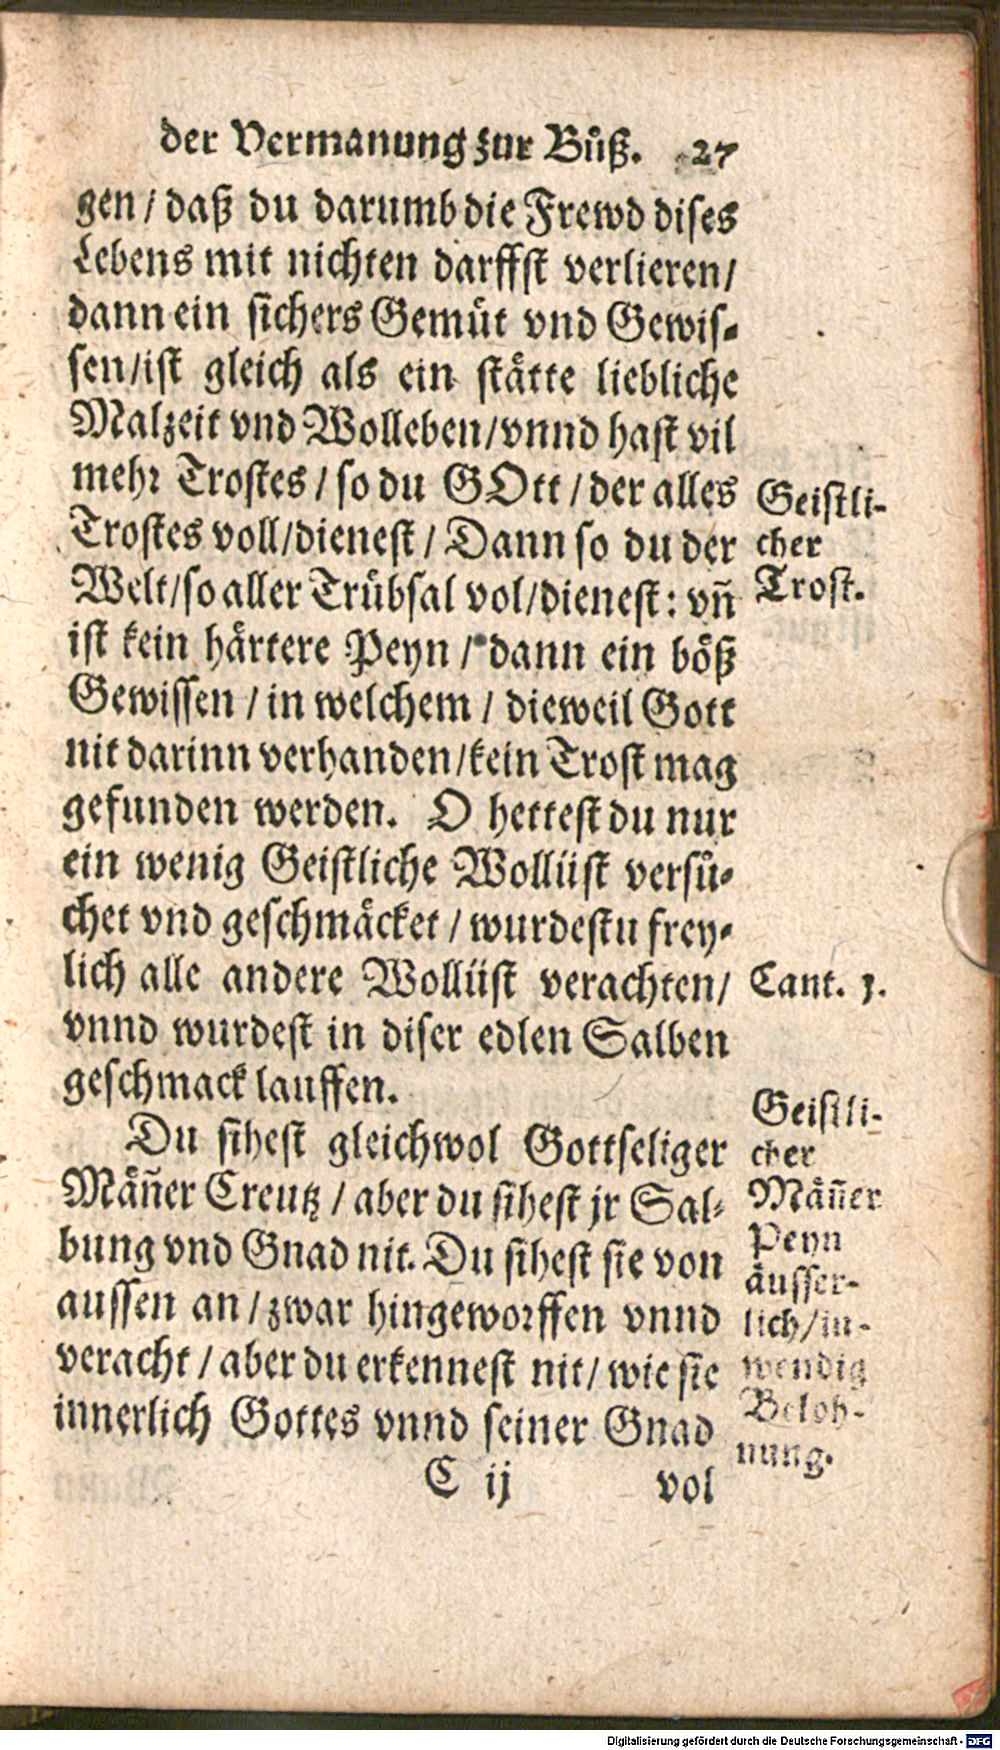 der Vermanung zur Bůß. 27
gen / daß du darumb die Frewd dises
Lebens mit nichten darffst verlieren /
dann ein sichers Gemůt vnd Gewis-
sen / ist gleich als ein stätte liebliche
Malzeit vnd Wolleben / vnnd hast vil
mehr Trostes / so du GOtt / der alles
Trostes voll / dienest / Dann so du der
Welt / so aller Trübsal vol / dienest : vñ
ist kein härtere Peyn / dann ein böß
Gewissen / in welchem / dieweil Gott
nit darinn verhanden / kein Trost mag
gefunden werden. O hettest du nur
ein wenig Geistliche Wollüst versů-
chet vnd geschmäcket / wurdestu frey-
lich alle andere Wollüst verachten /
vnnd wurdest in diser edlen Salben
geschmack lauffen.
Du sihest gleichwol Gottseliger
Mäñer Creutz / aber du sihest jr Sal-
bung vnd Gnad nit. Du sihest sie von
aussen an / zwar hingeworffen vnnd
veracht / aber du erkennest nit / wie sie
innerlich Gottes vnnd seiner Gnad
C ij vol
Geistli-
cher
Trost.
Cant. 1.
Geistli-
cher
Mäñer
Peyn
äusser-
lich / in-
wendig
Beloh-
nung.
Digitalisierung gefördert durch die Deutsche Forschungsgemeinschaft - DFG